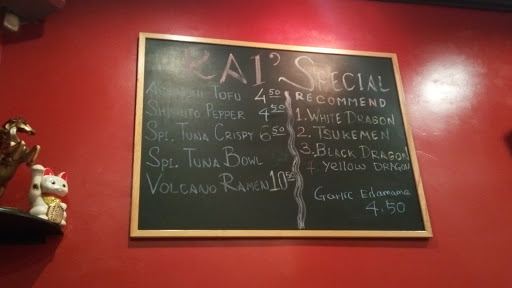 KAI' SPECIAL
AGEDASHI TOFU 4.50
SHISHITO PEPPER 4.50
SPI. TUNA CRISPY 6.50
SPI. TUNA BOWL
VOLCANO RAMEN 10.50
RECOMMEND
1. WHITE DRAGON
2. TSUKEMEN
3. BLACK DRAGON
4 YELLOW DRAGON
Garlic Edamame
4.50